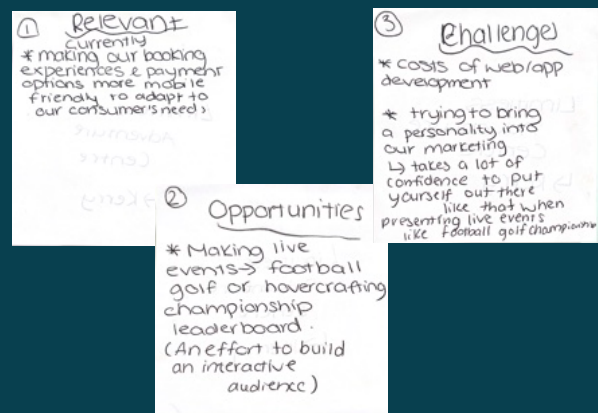 ① Relevant
Currently
* making our booking
experiences & payment
options more mobile
friendly to adapt to
our consumer's needs
② Opportunities
* Making live
events → football
golf or hovercrafting
championship
leaderboard.
(An effort to build
an interactive
audience)
③ Challenges
* costs of web/app
development
* trying to bring
a personality into
our marketing
↳ takes a lot of
confidence to put
yourself out there
like that when
presenting live events
like football golf championship